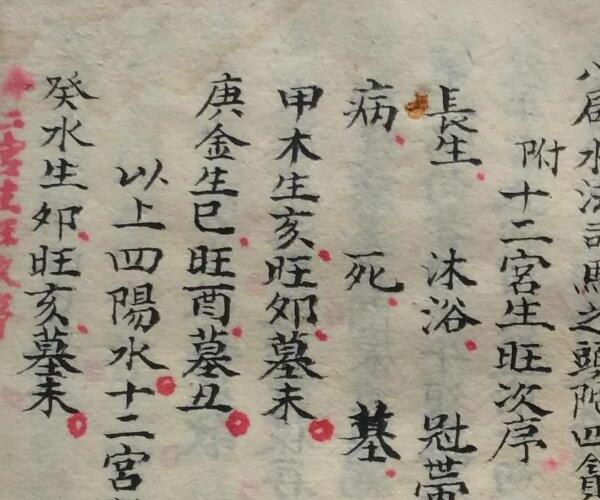 局水法司馬之頭陀四
附十二宮生旺次序
長生 沐浴 冠帶
病 死 墓
甲木生亥旺卯墓未
庚金生巳旺酉墓丑
以上四陽水十二宮
癸水生卯旺亥墓未
十二宮生旺次序